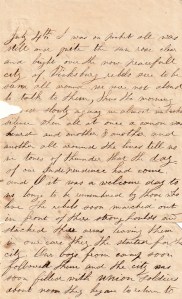 July 4th I was on picket all was
still and quiet the sun rose clear
and bright over the now peacefull
city of Vicksburg rebbs were to be
seen all around us we not aloud
to talk to them, thus the morning
was steady away in almost
silence when all at once a cannon was
heard and another & another and
another all around the lines tell us
in tones of thunder that the day
of our Independence had come
and O it was a welcome day to
us long to be remembered by those
the rebels soon marched out
in front of there strong holds and
stacked there arms leaving them
in our care they then started for the
city Our boys from camp soon
followed them and the city was
soon filled with Union Soldiers
about noon they began to return to